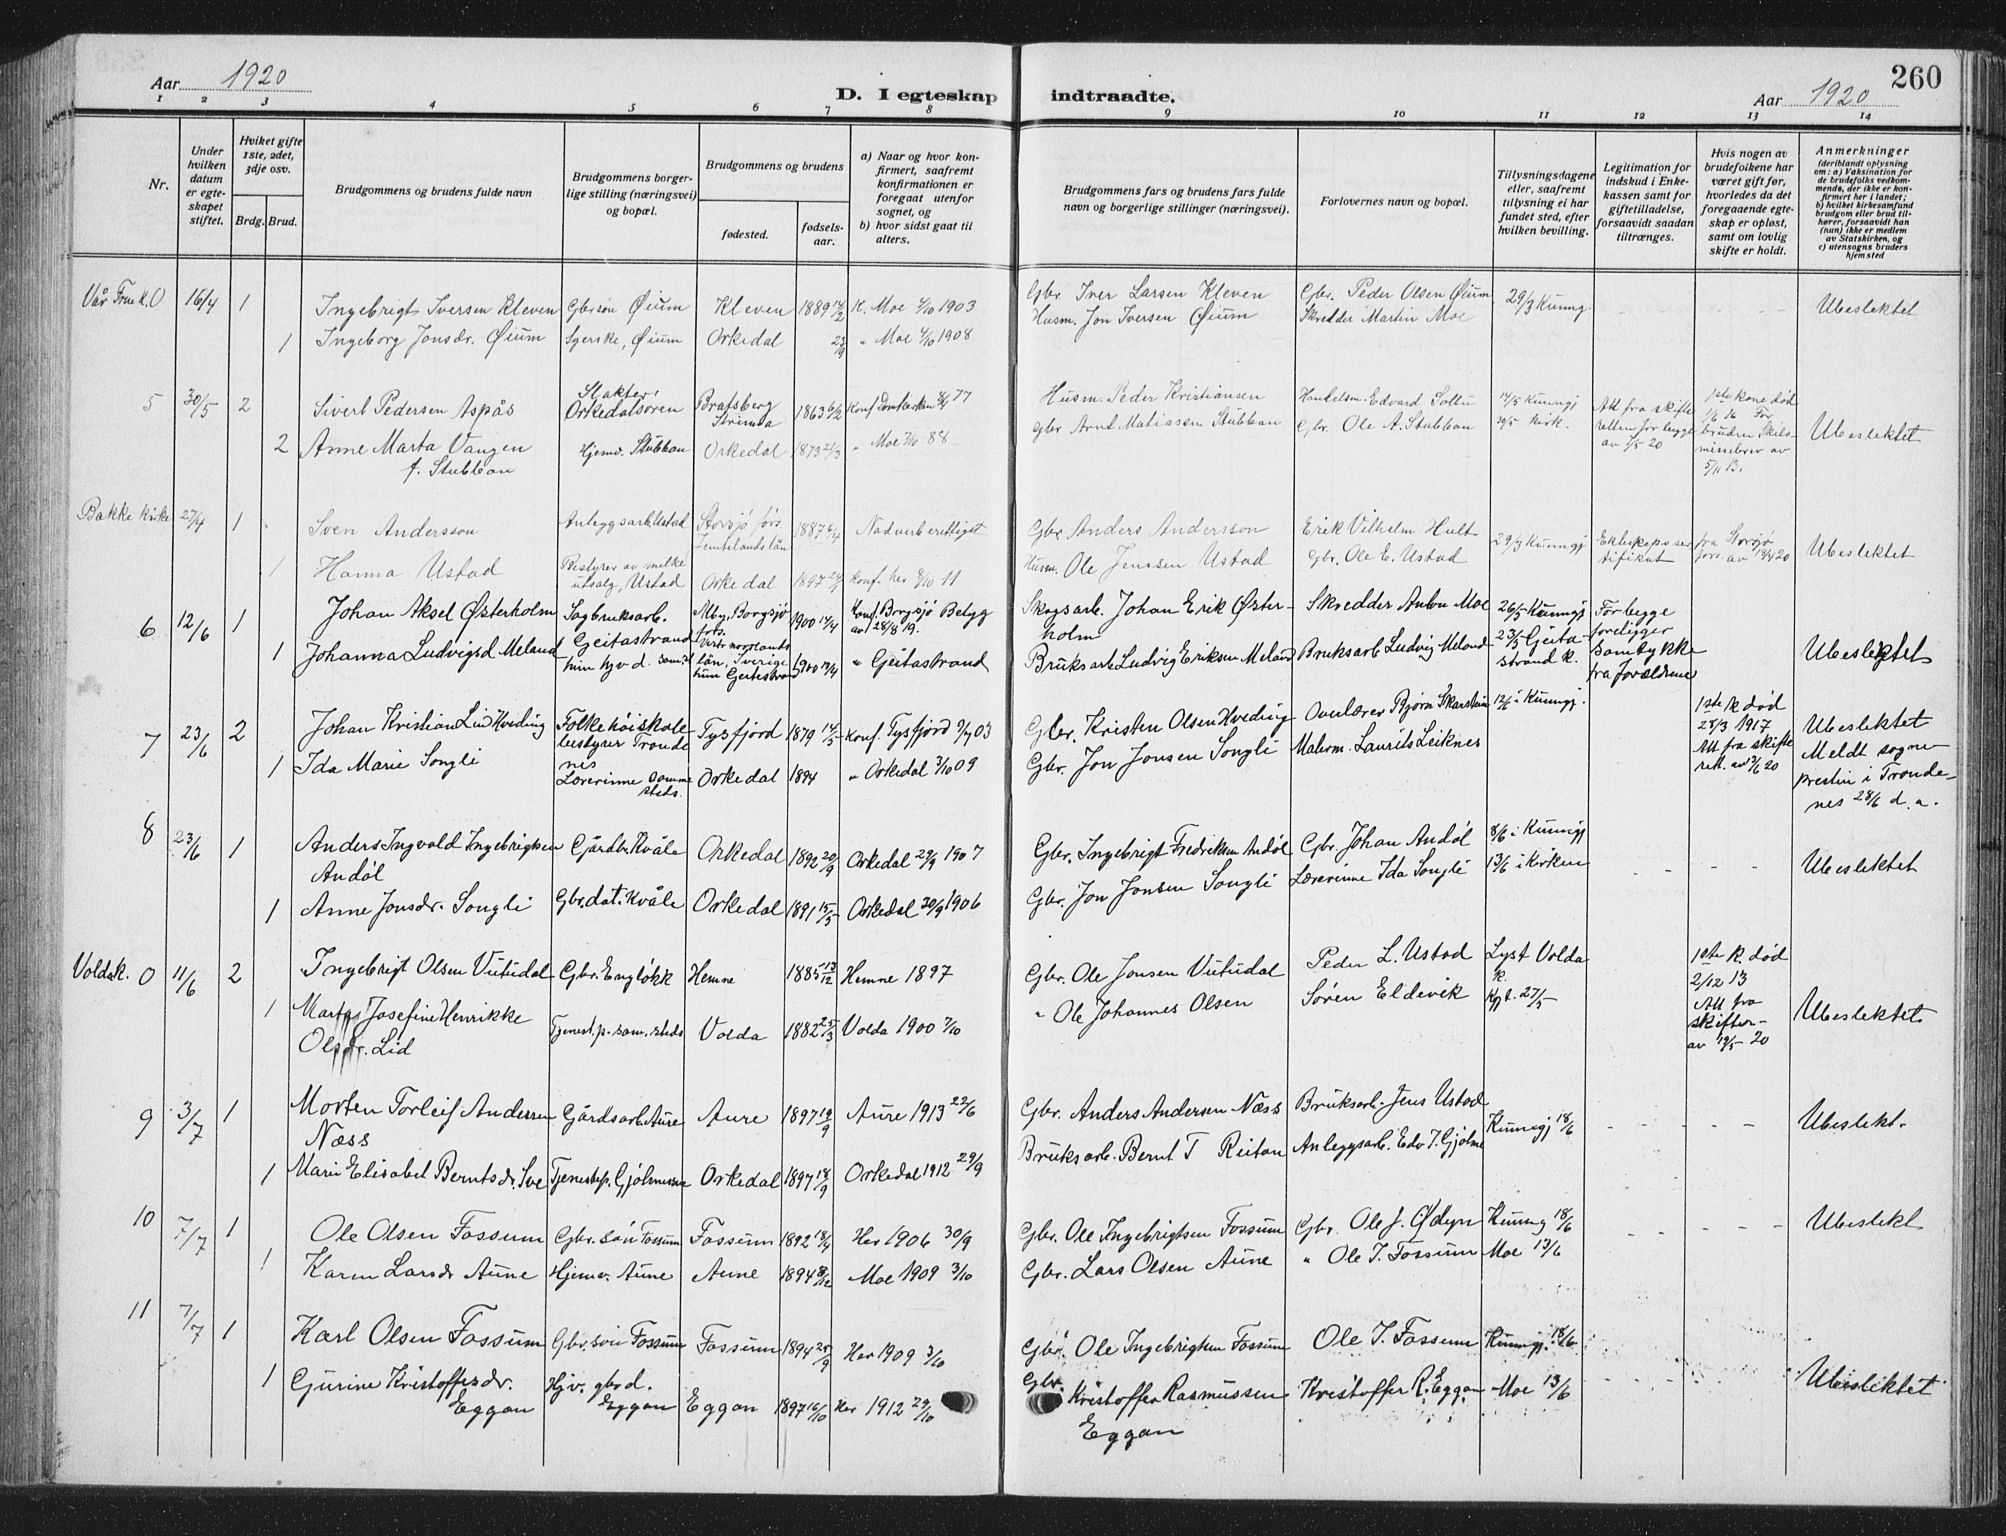 Aar 1920
D. I egteskap indtraadte.
Aar 1920
260
1 2 3 4 5 6 7 8 9 10 11 12 13 14
Nr.
Under hvilken datum er egteskapet stiftet.
Hviket gifte 1ste, 2det, 3dje osv.
Brdg. Brud.
Brudgommens og brudens fulde navn
Brudgommens borgerlige stilling (næringsvei) og bopæl.
Brudgommens og brudens
fødested.
fødselsaar.
a) Naar og hvor konfirmert, saafremt konfirmationen er foregaat utenfor sognet, og
b) hvor sidst gaat til alters.
Brudgommens fars og brudens fars fulde navn og borgerlige stillinger (næringsvei).
Forlovernes navn og bopæl.
Tillysningsdagene eller, saafremt tillysning ei har fundet sted, efter hvilken bevilling.
Legitimation for indskud i Enkekassen samt for giftetilladelse, forsaavidt saadan tiltrænges.
Hvis nogen av brudefolkene har været gift før, hvorledes da det foregaaende egteskap er opløst, samt om lovlig skifte er holdt.
Anmerkninger (deriblandt oplysning om: a) Vaksination for de brudefolks vedkommende, der ikke er konfirmert her i landet; b) hvilket kirkesamfund brudgom eller brud tilhører, forsaavidt han (hun) ikke er medlem av Statskirken, og c) utensogns bruders hjemsted
Vår Frue k. O 16/4 1 Ingebrigt Iversen Kleven Gbr.søn Øium Kleven 1889 K. Moe 4/10 1903 Gbr. Iver Larsen Kleven Gbr. Peder Olsen Øium 29/3 Kunng Ubeslektet
1 Ingeborg Jonsdr. Øium Syerske, Øium Orkedal 23/9 " Moe 4/10 1908 Husm. Jon Iversen Øium Skredder Martin Moe
5 30/5 2 Sivert Pedersen Aspås Slakter, Orkedalsøren Bratsberg Strinda 1863 6/2 Konf Domkirken 77 Husm. Peder Kristiansen Handelsm. Edvard Solbu 14/5 Kunngj Att fra skifteretten for begge av 7/5 20 1ste kone død For bruden Skilsmissebrev av 5/11 13. Ubeslektet
2 Anne Marta Vangen f. Stubban Hjemv. Stubban Orkedal 1873 21/3 " Moe 88 Gbr Arnt Matiassen Stubban Gbr. Ole A. Stubban 30/5 kirk.
Bakke kirke 27/4 1 Sven Andersson Anleggsarb Ustad Storsjø førs. Jemtelands län 1887 Nadverberettiget Gbr Anders Andersson Erik Vilhelm Hult 29/3 Kunngj Ekteskapssertifikat fra Storsjø fors. av 18/4 20 Ubeslektet
1 Hanna Ustad Bestyrer av melkeutsalg, Ustad Orkedal 1897 konf. her 8/10 11 Husm. Ole Jenssen Ustad Gbr. Ole E. Ustad
6 12/6 1 Johan Aksel Østerholm Sagbruksarb. Geitastrand Alby, Borgsjø fors. Vesternorrlands län, Sverige 1900 14/4 Konf. Borgsjø Betyg av 28/8 19. Skogsarb. Johan Erik Østerholm Skredder Anton Moe 26/5 Kunngj For begge foreligger samtykke fra forældrene Ubeslektet
1 Johanna Ludvigsd Meland hun hjv d. sam.st hun Geitastrand 1900 19/4 " Geitastrand Bruksarb Ludvig Eriksen Meland Bruksarb Ludvig Meland 23/5 Geitastrand k.
7 23/6 2 Johan Kristian Lind Hveding Folkehøiskolebestyrer Trondenes Tysfjord 1879 14/5 Konf. Tysfjord 9/7 03 Gbr. Kristen Olsen Hveding Overlærer Bjørn Skarstein 12/6 i Kunngj. 1ste k død 28/3 1917 Att fra skifterett. av 3/6 20 Ubeslektet Meldt sogneprestin i Trondenes 28/6 d. a.
1 Ida Marie Songli Lærerinne sammesteds. Orkedal 1894 " Orkedal 3/10 09 Gbr. Jon Jonsen Songli Malerm. Laurits Leiknes
8 23/6 1 Anders Ingvald Ingebrigtsen Andøl Gårdbr. Kvåle Orkedal 1892 20/9 Orkedal 29/9 1907 Gbr. Ingebrigt Fredriksen Andøl Gbr. Johan Andøl 8/6 i Kunngj Ubeslektet
1 Anne Jonsdr. Songli Gbr.dat. Kvåle Orkedal 1891 15/5 Orkedal 30/9 1906 Gbr. Jon Jonsen Songli Lærerinne Ida Songli 13/6 i kirken
Volda k. O 11/6 2 Ingebrigt Olsen Vutudal Gbr. Engløkk Hemne 1885 13/12 Hemne 1897 Gbr. Ole Jonsen Vutudal Peder L. Ustad Lyst Volda k. 1ste k. død 2/12 13 Att fra skifter- av 19/5 20 Ubeslektet
1 Marta Josefine Henrikke Olsdr. Lid Tjenest.p. sam.steds Volda 1882 25/3 Volda 1900 7/10 " Ole Johannes Olsen Søren Eldevik Kgt. 27/5
9 3/7 1 Morten Torleif Andersen Næss Gårdsarb Aure Aure 1897 19/9 Aure 1913 22/6 Gbr. Anders Andersen Næss Bruksarb. Jens Ustad Kunngj 18/6 Ubeslekt.
1 Marie Elisabet Berntsdr. Sve Tjenestep. Gjølmesøre Orkedal 1897 18/9 Orkedal 1912 29/9 Bruksarb. Bernt T Reitan Anleggsarb. Edv T. Gjølme
10 7/7 1 Ole Olsen Fossum Gbr. søn Fossum Fossum 1892 18/4 Her 1906 30/9 Gbr. Ole Ingebrigtsen Fossum Gbr. Ole J. Ødyn Kunng 18/6 Ubeslekt
1 Karen Larsdr Aune Hjemv. Aune Aune 1894 8/12 Moe 1909 3/10 Gbr. Lars Olsen Aune " Ole I. Fossum Moe 13/6
11 7/7 1 Karl Olsen Fossum Gbr. søn Fossum Fossum 1894 25/9 Her 1909 3/10 Gbr. Ole Ingebrigtsen Fossum Ole I. Fossum Kunngj. 18/6 Ubeslektet
1 Gurine Kristoffersdr. Eggan Hjv. gbrd. Eggan Eggan 1897 16/10 Her 1912 29/10 Gbr. Kristoffer Rasmussen Eggan Kristoffer R. Eggan Moe 13/6